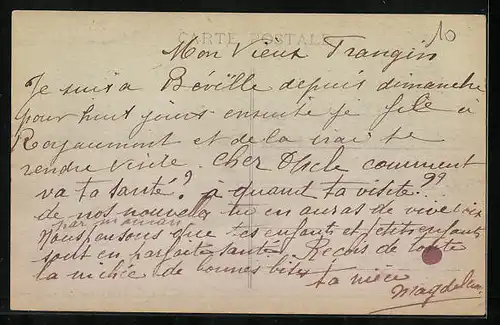 10
CARTE POSTALE
Mon Vieux Frangin
Je suis a Béville depuis dimanche
pour huit jours ensuite je file à
Royaumont et de la irai te
rendre visite. Cher Oncle comment
va ta santé? à quand ta visite??
de nos nouvelles tu en auras de vive voix
par maman
Nous pensons que tes enfants et petits enfants
sont en parfaite santé. Reçois de toute
la nichée de bonnes bises
ta nièce
Magdeleine